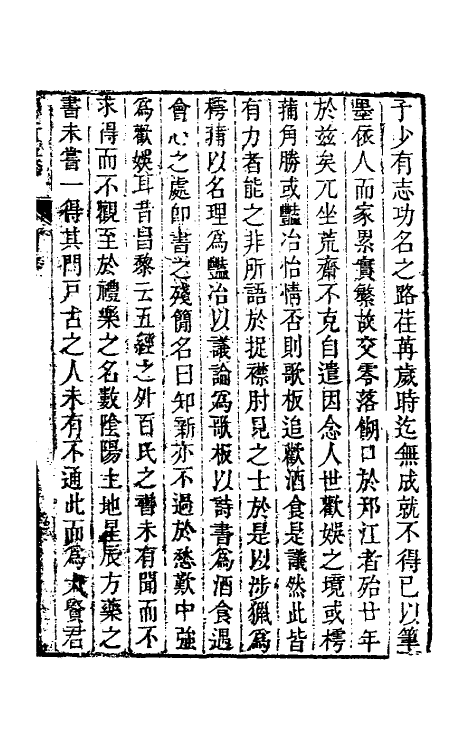 子少有志功名之路荏苒歲時迄無成就不得已以筆
墨依人而家累實繁故交零落餬口於邗江者殆廿年
於兹矣兀坐荒齋不克自遣因念人世歡娛之境或樗
蒱角勝或豔冶怡情否則歌板追歡酒食是議然此皆
有力者能之非所語於捉襟肘見之士於是以涉獵為
樗蒱以名理為豔冶以議論為歌板以詩書為酒食遇
會心之處卽書之殘簡名曰知新亦不過於愁歎中強
為歡娛耳昔昌黎云五經之外百氏之書未有聞而不
求得而不觀至於禮樂之名數陰陽土地星辰方藥之
書未嘗一得其門戸古之人未有不通此而為大賢君